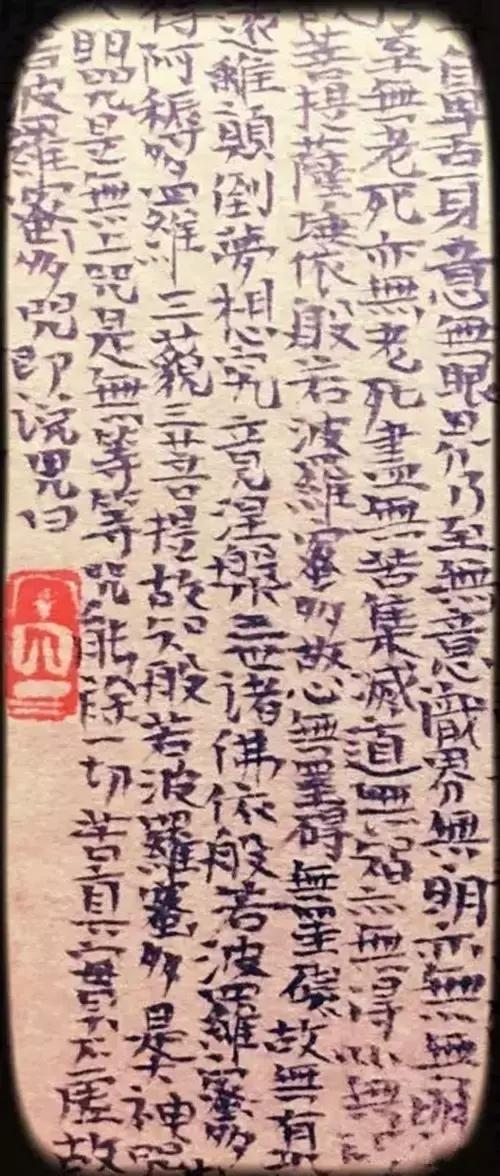 鼻舌身意無眼界乃至無意識界無明亦無無明
乃至無老死亦無老死盡無苦集滅道無智亦無得以無所
故菩提薩埵依般若波羅蜜多故心無罣礙無罣礙故無有
遠離顛倒夢想究竟涅槃三世諸佛依般若波羅蜜多
得阿耨多羅三藐三菩提故知般若波羅蜜多是大神咒
明咒是無上咒是無等等咒能除一切苦真實不虛故
若波羅蜜多咒即說咒曰